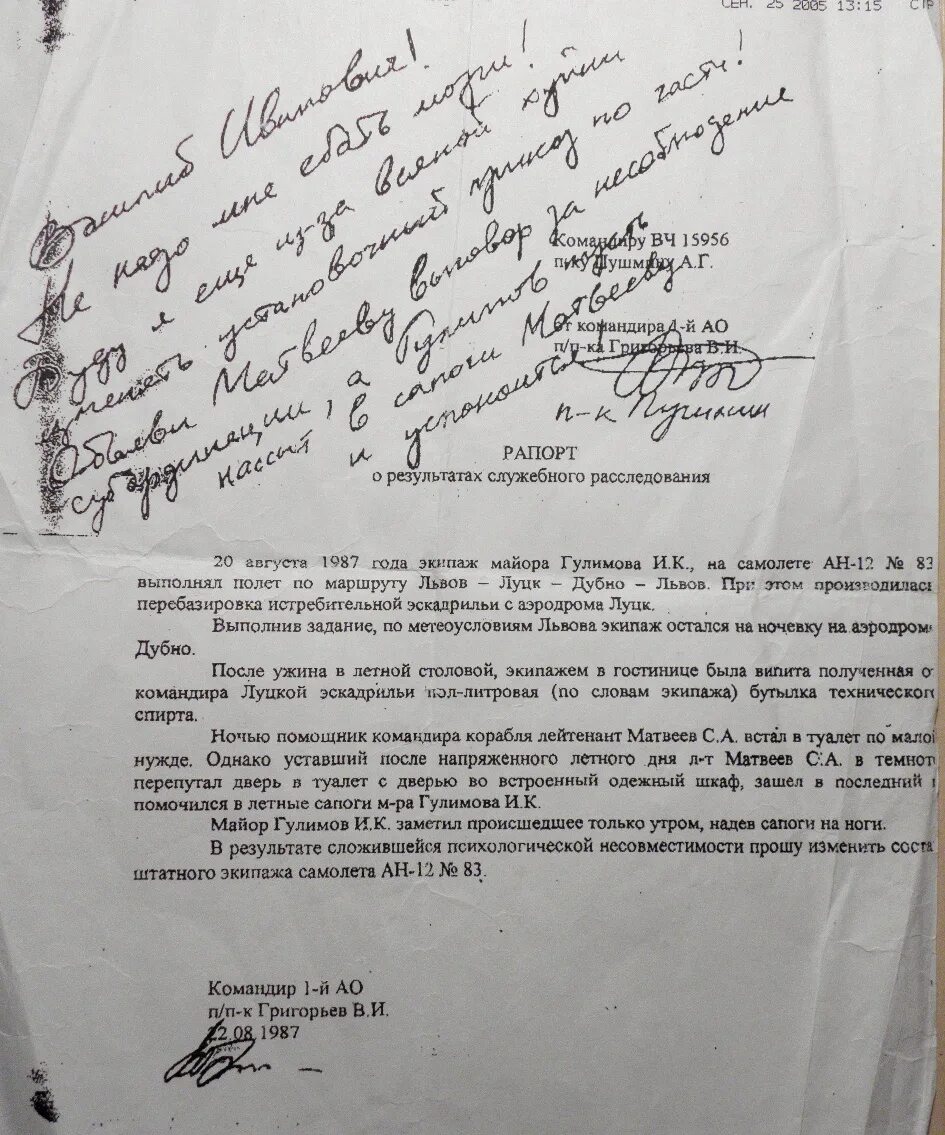 СЕН. 25 2005 13:15 СТР
Василий Иванович!
Не надо мне ебать мозги!
Буду я еще из-за всякой хуйни
изменять установочный приказ по части!
Объяви Матвееву выговор за несоблюдение
субординации, а Гулимов пусть
нассыт в сапоги Матвееву
и успокоится!
Командиру ВЧ 15956
п-ку Пушмину А.Г.
от командира 1-й АО
п/п-ка Григорьева В.И.
п-к Пушмин
РАПОРТ
о результатах служебного расследования
20 августа 1987 года экипаж майора Гулимова И.К., на самолете АН-12 № 83
выполнял полет по маршруту Львов – Луцк – Дубно – Львов. При этом производилась
перебазировка истребительной эскадрильи с аэродрома Луцк.
Выполнив задание, по метеоусловиям Львова экипаж остался на ночевку на аэродром
Дубно.
После ужина в летной столовой, экипажем в гостинице была випита полученная о
командира Луцкой эскадрильи пол-литровая (по словам экипажа) бутылка технического
спирта.
Ночью помощник командира корабля лейтенант Матвеев С.А. встал в туалет по малой
нужде. Однако уставший после напряженного летного дня л-т Матвеев С.А. в темнот
перепутал дверь в туалет с дверью во встроенный одежный шкаф, зашел в последний и
помочился в летные сапоги м-ра Гулимова И.К.
Майор Гулимов И.К. заметил происшедшее только утром, надев сапоги на ноги.
В результате сложившейся психологической несовместимости прошу изменить соста
штатного экипажа самолета АН-12 № 83.
Командир 1-й АО
п/п-к Григорьев В.И.
22.08.1987